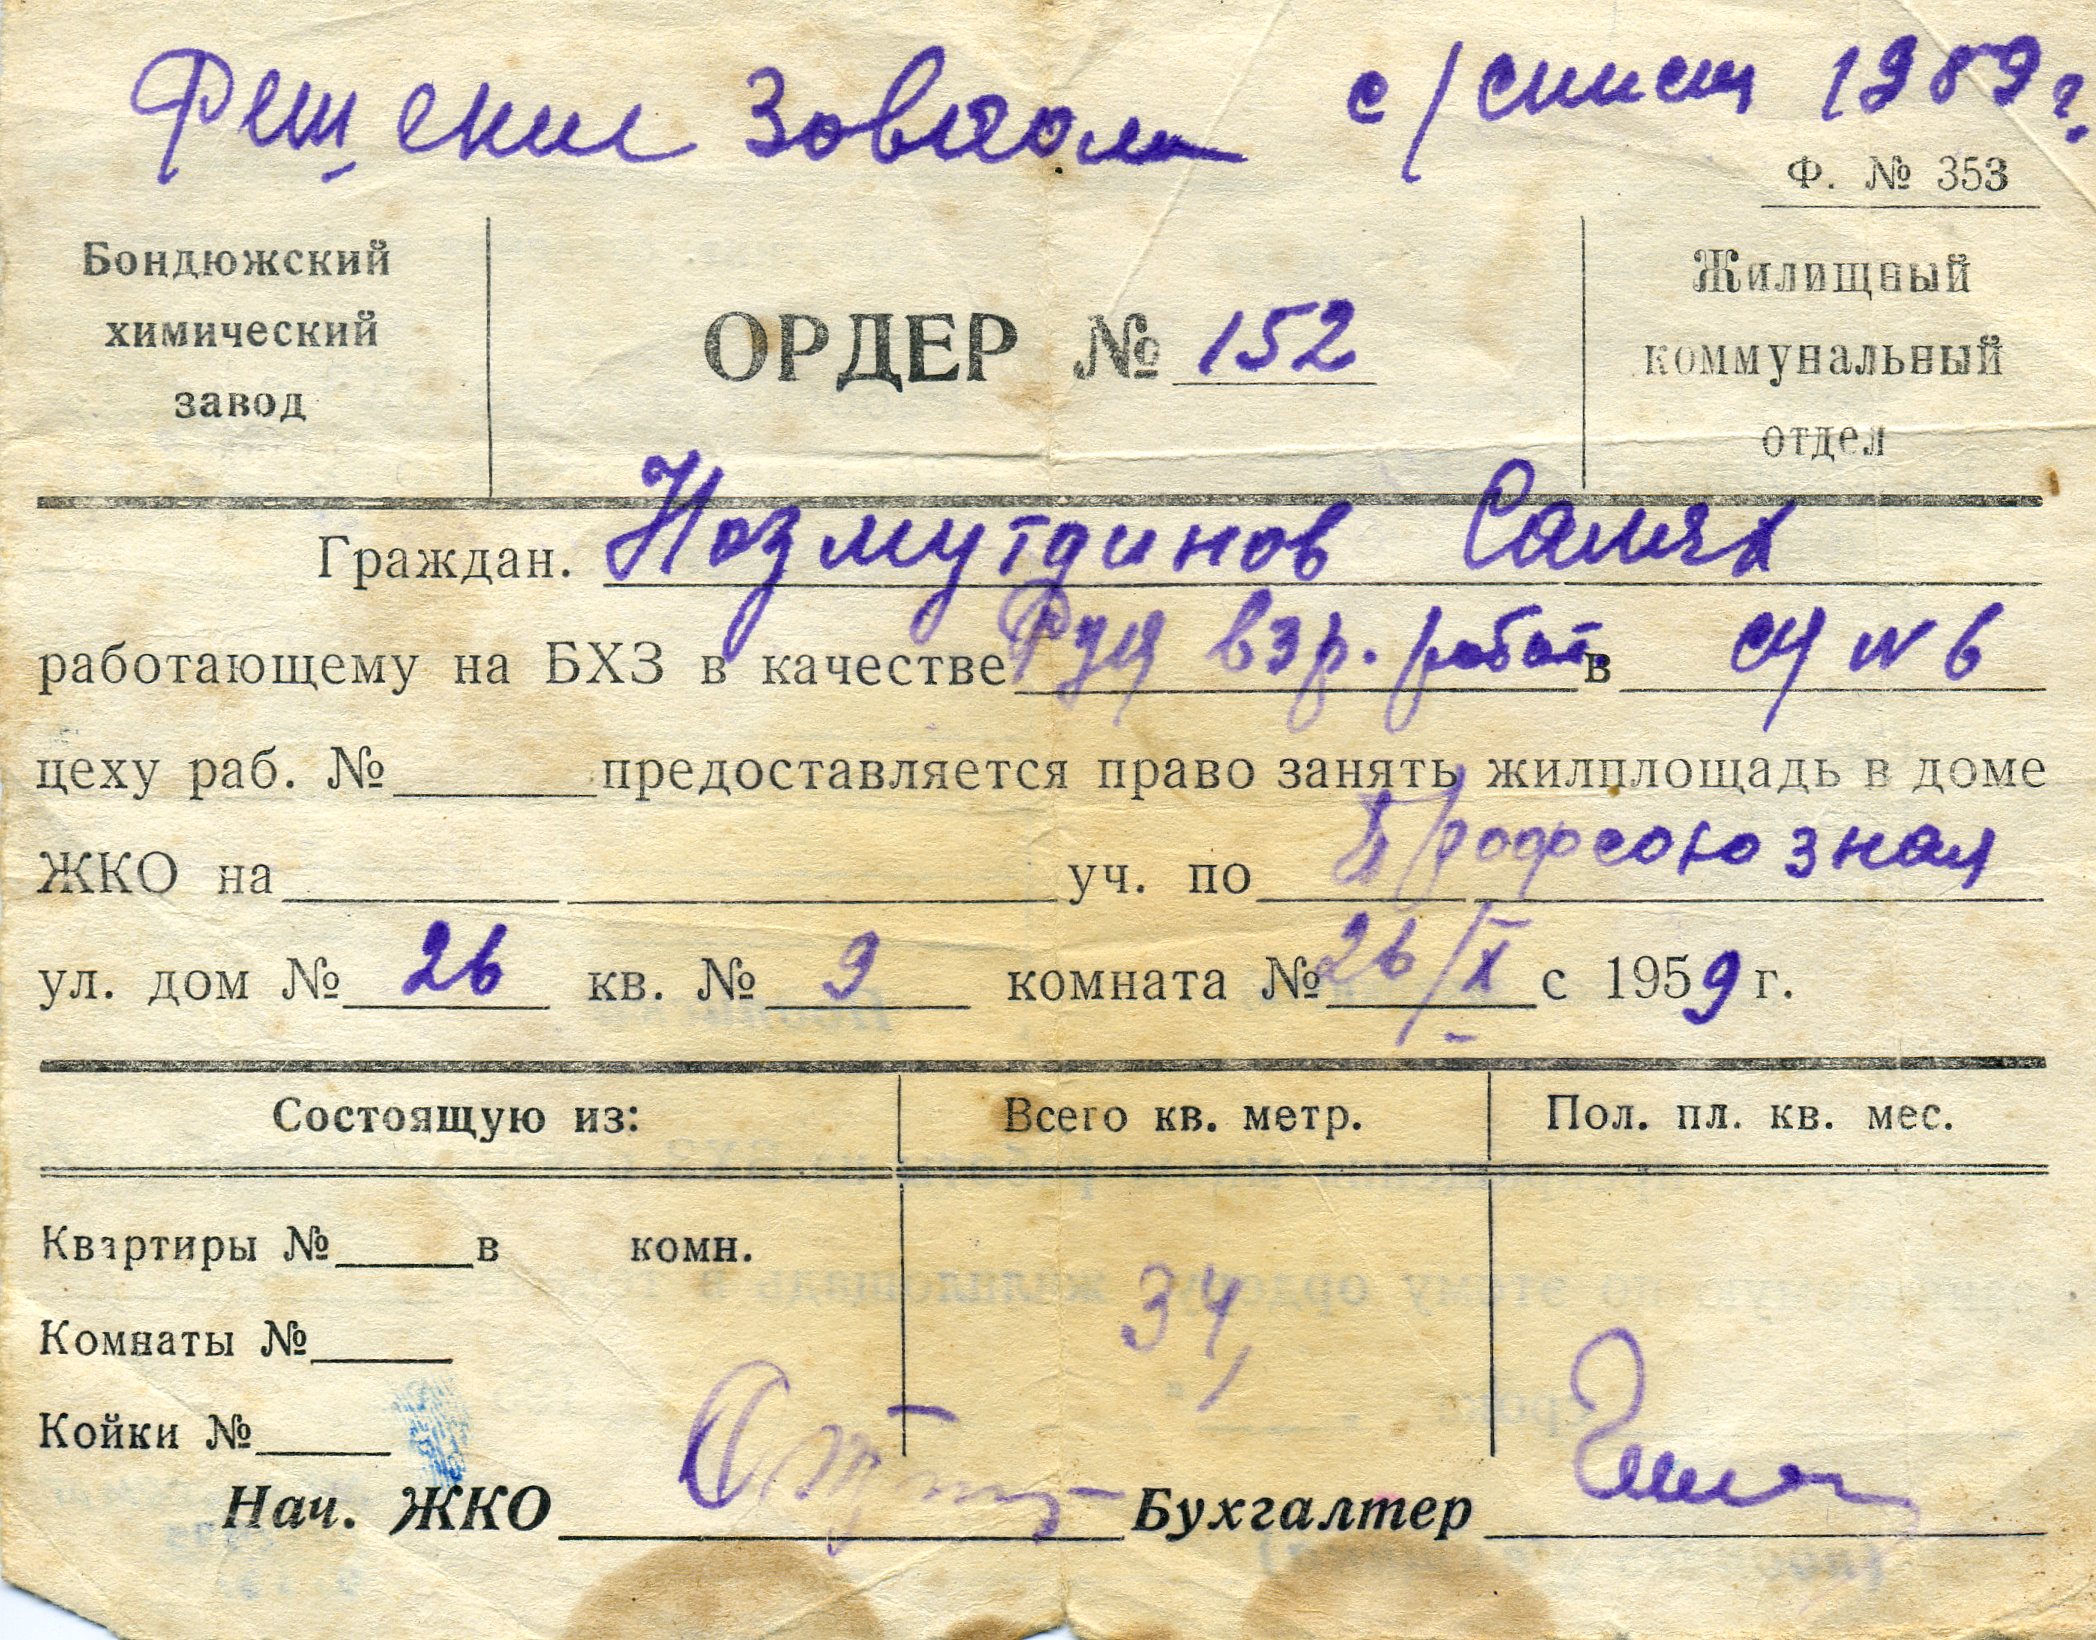 Решение Завкома с/списку 1959 г.
Ф. № 353
Бондюжский
химический
завод
ОРДЕР № 152
Жилищный
коммунальный
отдел
Граждан. Назмутдинов
работающему на БХЗ в качестве взр. работ. в № 6
цеху раб. № предоставляется право занять жилплощадь в доме
ЖКО на уч. по Профсоюзная
ул. дом № 26 кв. № 9 комната № 26/X с 1959 г.
Состоящую из: Всего кв. метр. Пол. пл. кв. мес.
Квартиры № в комн.
34,
Комнаты №
Койки №
Нач. ЖКО Бухгалтер